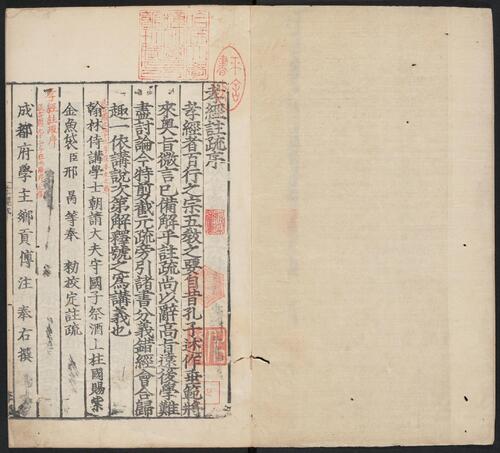 孝經註疏序
孝經者百行之宗五教之要自昔孔子述作垂範將
來奧旨微言已備解乎註疏尚以辭高旨遠後學難
盡討論今特剪截元疏旁引諸書分義錯經會合歸
趣一依講說次第解釋號之為講義也
翰林侍講學士朝請大夫守國子祭酒上柱國賜紫
金魚袋臣邢昺等奉 勑校定註疏
成都府學主鄉貢傅注 奉右撰